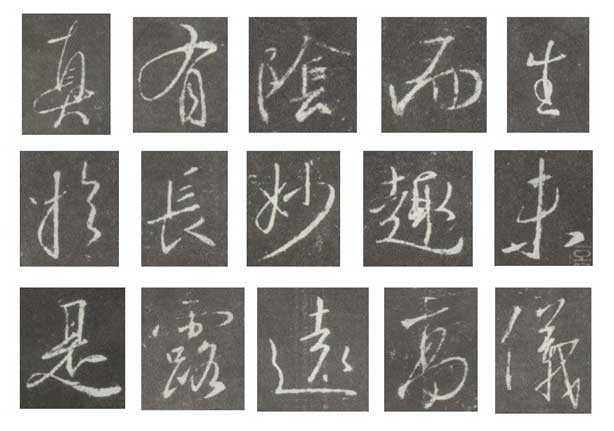 真有陰而生
於長妙趣
是露遠高儀